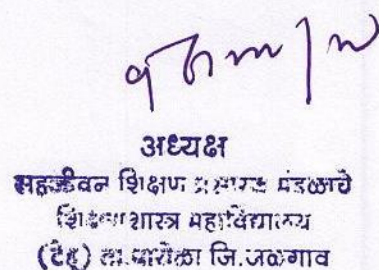 अध्यक्ष
सहजीवन शिक्षण प्रसारक मंडळाचे
शिक्षणशास्त्र महाविद्यालय
(टेहू) ता.पारोळा जि.जळगाव